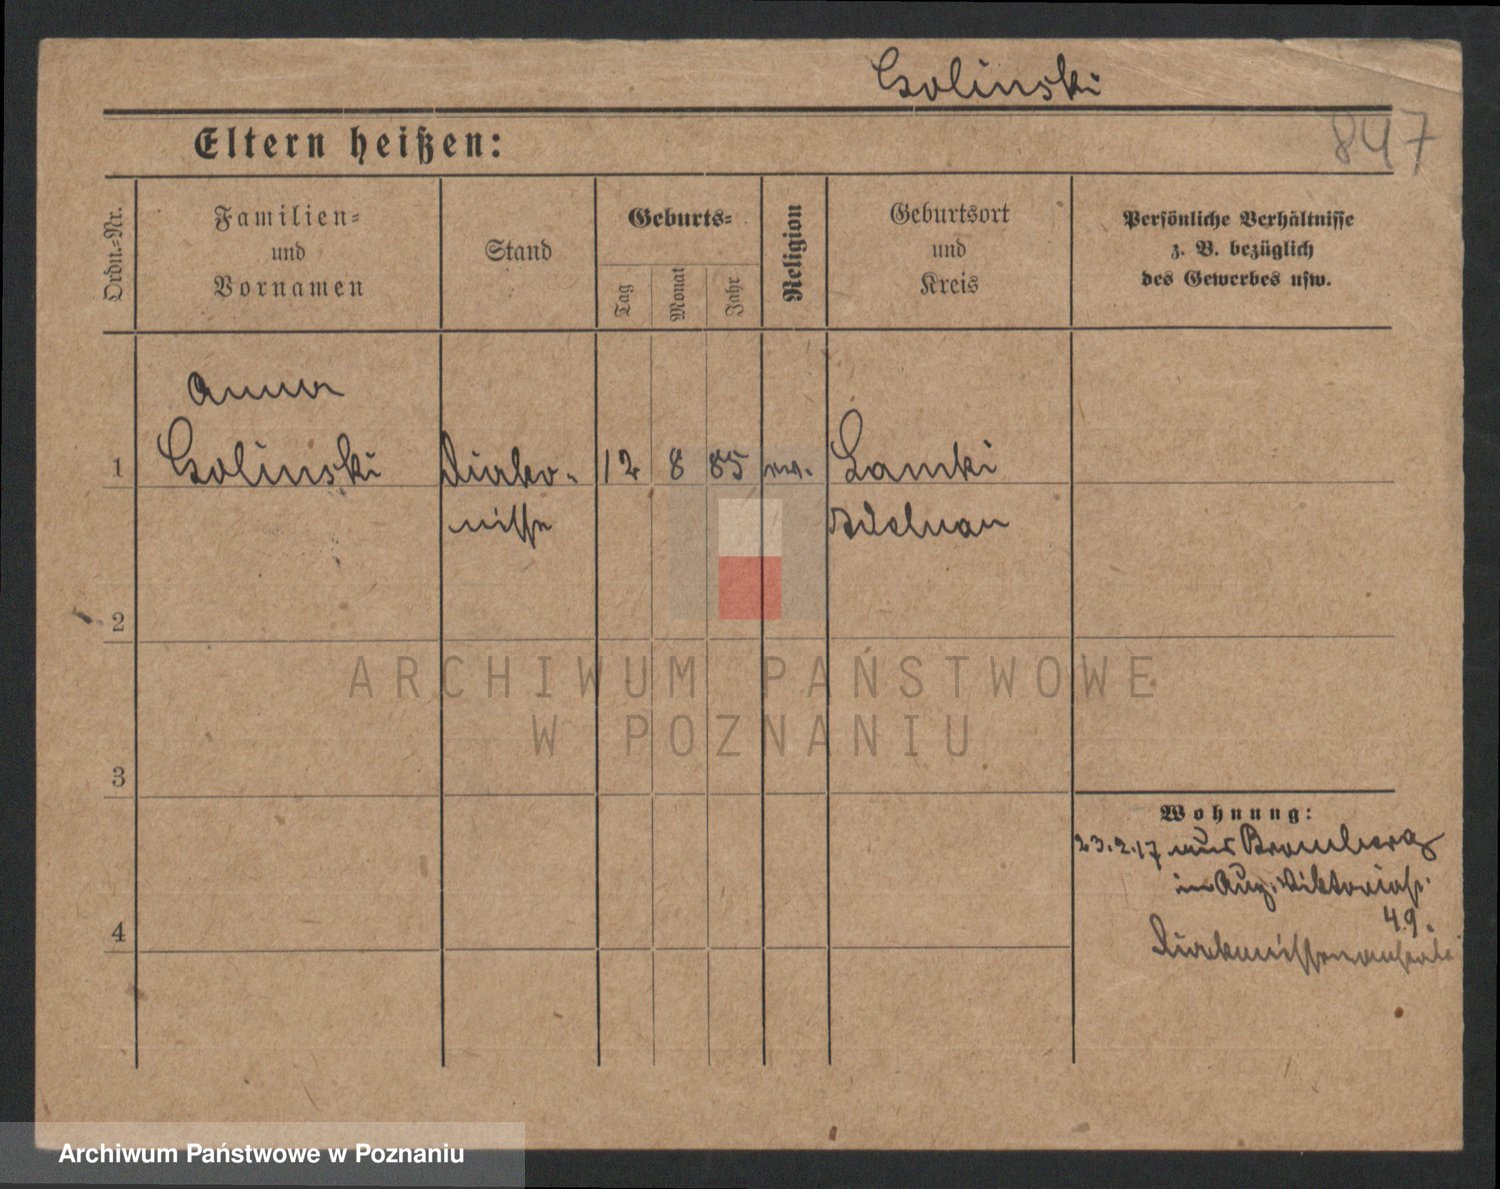 Golinski
847
Eltern heißen:
Ordn.-Nr.
Familien-
und
Vornamen
Stand
Geburts-
Tag
Monat
Jahr
Religion
Geburtsort
und
Kreis
Persönliche Verhältnisse
z. B. bezüglich
des Gewerbes usw.
Anna
1 Golinski Diako- 12 8 85 ev. Lamki
nisse Adelnau
2
3
4
ARCHIWUM PAŃSTWOWE
W POZNANIU
Wohnung:
23.2.17 aus Bromberg
in Aug. Viktoriast.
49.
Diakonissenanstalt
Archiwum Państwowe w Poznaniu